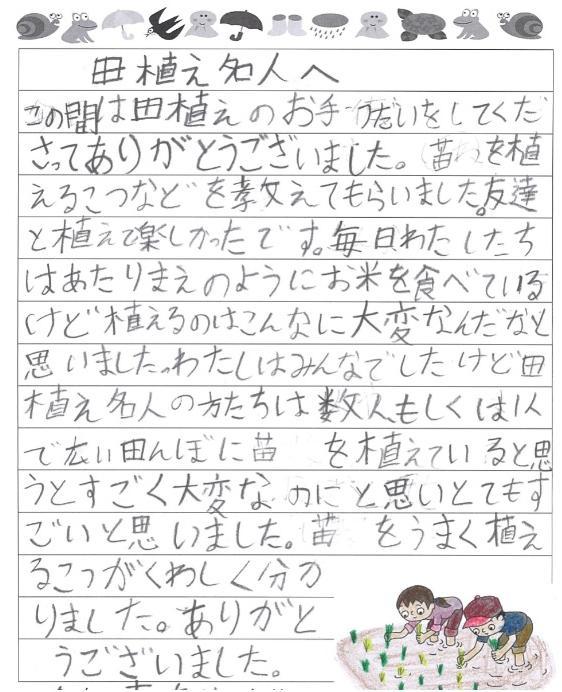 田植え名人へ
この間は田植えのお手つだいをしてくだ
さってありがとうございました。苗を植
えるこつなどを教えてもらいました。友達
と植えて楽しかったです。毎日わたしたち
はあたりまえのようにお米を食べている
けど植えるのはこんなに大変なんだなと
思いました。わたしはみんなでしたけど田
植え名人の方たちは数人もしくは1人
で広い田んぼに苗を植えていると思
うとすごく大変なのにと思いとてもす
ごいと思いました。苗をうまく植え
るこつがくわしく分か
りました。ありがと
うございました。